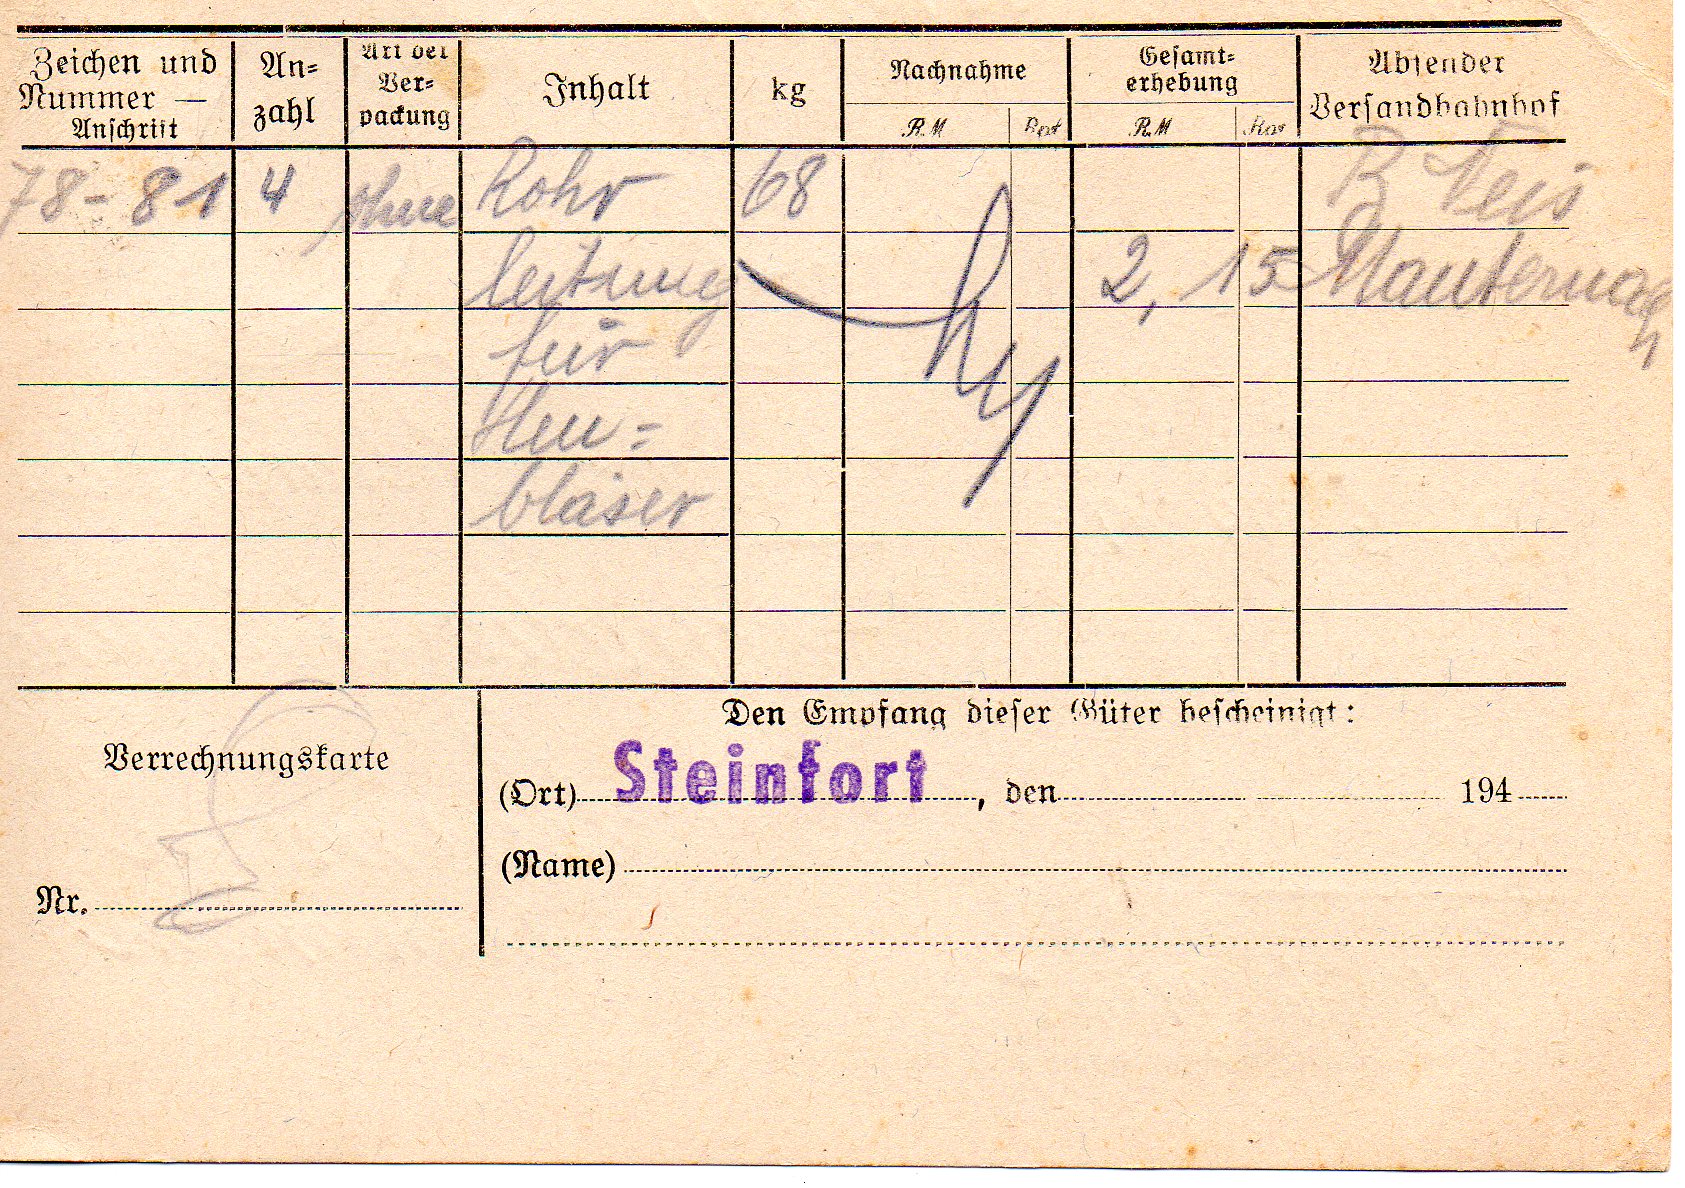 Zeichen und Nummer — Anschrift
An-zahl
Art der Ver-packung
Inhalt
kg
Nachnahme
RM Rpf
Gesamt-erhebung
RM Rpf
Absender Versandbahnhof
78-81 4 ohne Rohr 68
leitung 2,15
für
Heu=
bläser
Verrechnungskarte
Nr.
Den Empfang dieser Güter bescheinigt:
(Ort) Steinfort, den 194
(Name)